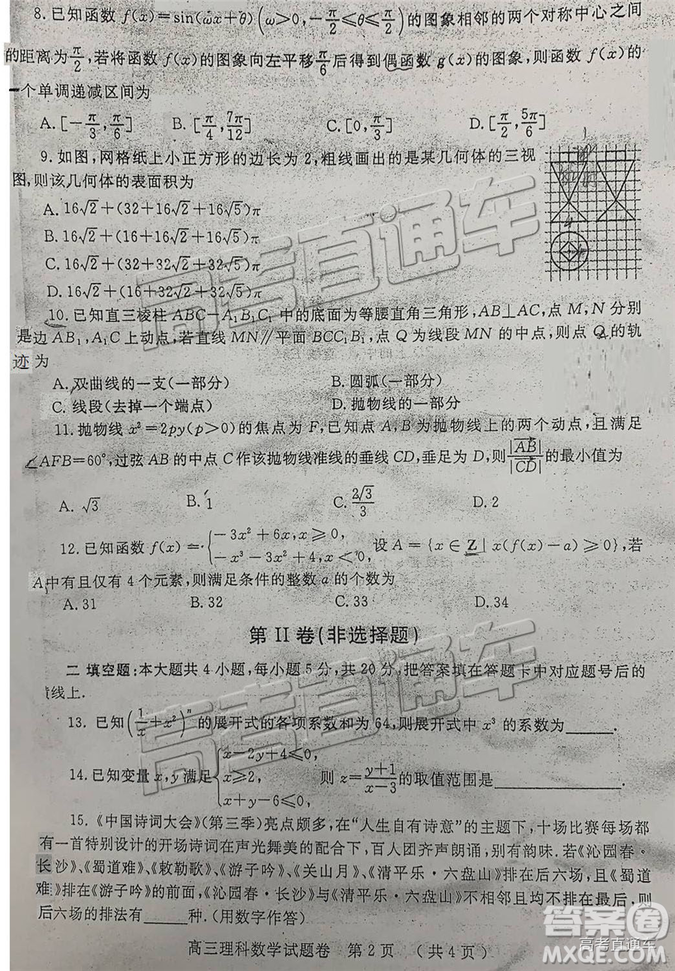 8.已知函数 f(x)=sin(ωx+θ)(ω>0,-π/2≤θ≤π/2)的图象相邻的两个对称中心之间
的距离为π/2,若将函数 f(x)的图象向左平移π/6后得到偶函数 g(x)的图象,则函数 f(x)的
一个单调递减区间为
A.[-π/3,π/6] B.[π/4,7π/12] C.[0,π/3] D.[π/2,5π/6]
9.如图,网格纸上小正方形的边长为2,粗线画出的是某几何体的三视
图,则该几何体的表面积为
A.16√2+(32+16√2+16√5)π
B.16√2+(16+16√2+16√5)π
C.16√2+(16+32√2+32√5)π
D.16√2+(32+32√2+32√5)π
10.已知直三棱柱 ABC-A₁B₁C₁ 中的底面为等腰直角三角形,AB⊥AC,点 M,N 分别
是边 AB₁,A₁C 上动点,若直线 MN∥平面 BCC₁B₁,点 Q 为线段 MN 的中点,则点 Q 的轨
迹为
A.双曲线的一支(一部分) B.圆弧(一部分)
C.线段(去掉一个端点) D.抛物线的一部分
11.抛物线 x²=2py(p>0)的焦点为 F,已知点 A,B 为抛物线上的两个动点,且满足
∠AFB=60°,过弦 AB 的中点 C 作该抛物线准线的垂线 CD,垂足为 D,则|AB|/|CD|的最小值为
A.√3 B.1 C.2√3/3 D.2
12.已知函数 f(x)={-3x²+6x,x≥0, -x³-3x²+4,x<0, 设 A={x∈Z|x(f(x)-a)≥0},若
A中有且仅有4个元素,则满足条件的整数 a 的个数为
A.31 B.32 C.33 D.34
第 II 卷(非选择题)
二 填空题:本大题共4小题,每小题5分,共20分,把答案填在答题卡中对应题号后的
横线上.
13.已知(1/x+x²)ⁿ的展开式的各项系数和为64,则展开式中 x³ 的系数为______.
14.已知变量 x,y 满足{x-2y+4≤0, x≥2, x+y-6≥0, 则 z=(y+1)/(x-3)的取值范围是______.
15.《中国诗词大会》(第三季)亮点颇多,在“人生自有诗意”的主题下,十场比赛每场都
有一首特别设计的开场诗词在声光舞美的配合下,百人团齐声朗诵,别有韵味.若《沁园春·
长沙》、《蜀道难》、《敕勒歌》、《游子吟》、《关山月》、《清平乐·六盘山》排在后六场,且《蜀道
难》排在《游子吟》的前面,《沁园春·长沙》与《清平乐·六盘山》不相邻且均不排在最后,则
后六场的排法有______种.(用数字作答)
高三理科数学试题卷 第2页 (共4页)
高考直通车
高考直通车
高考直通车
答案圈
MXQE.COM